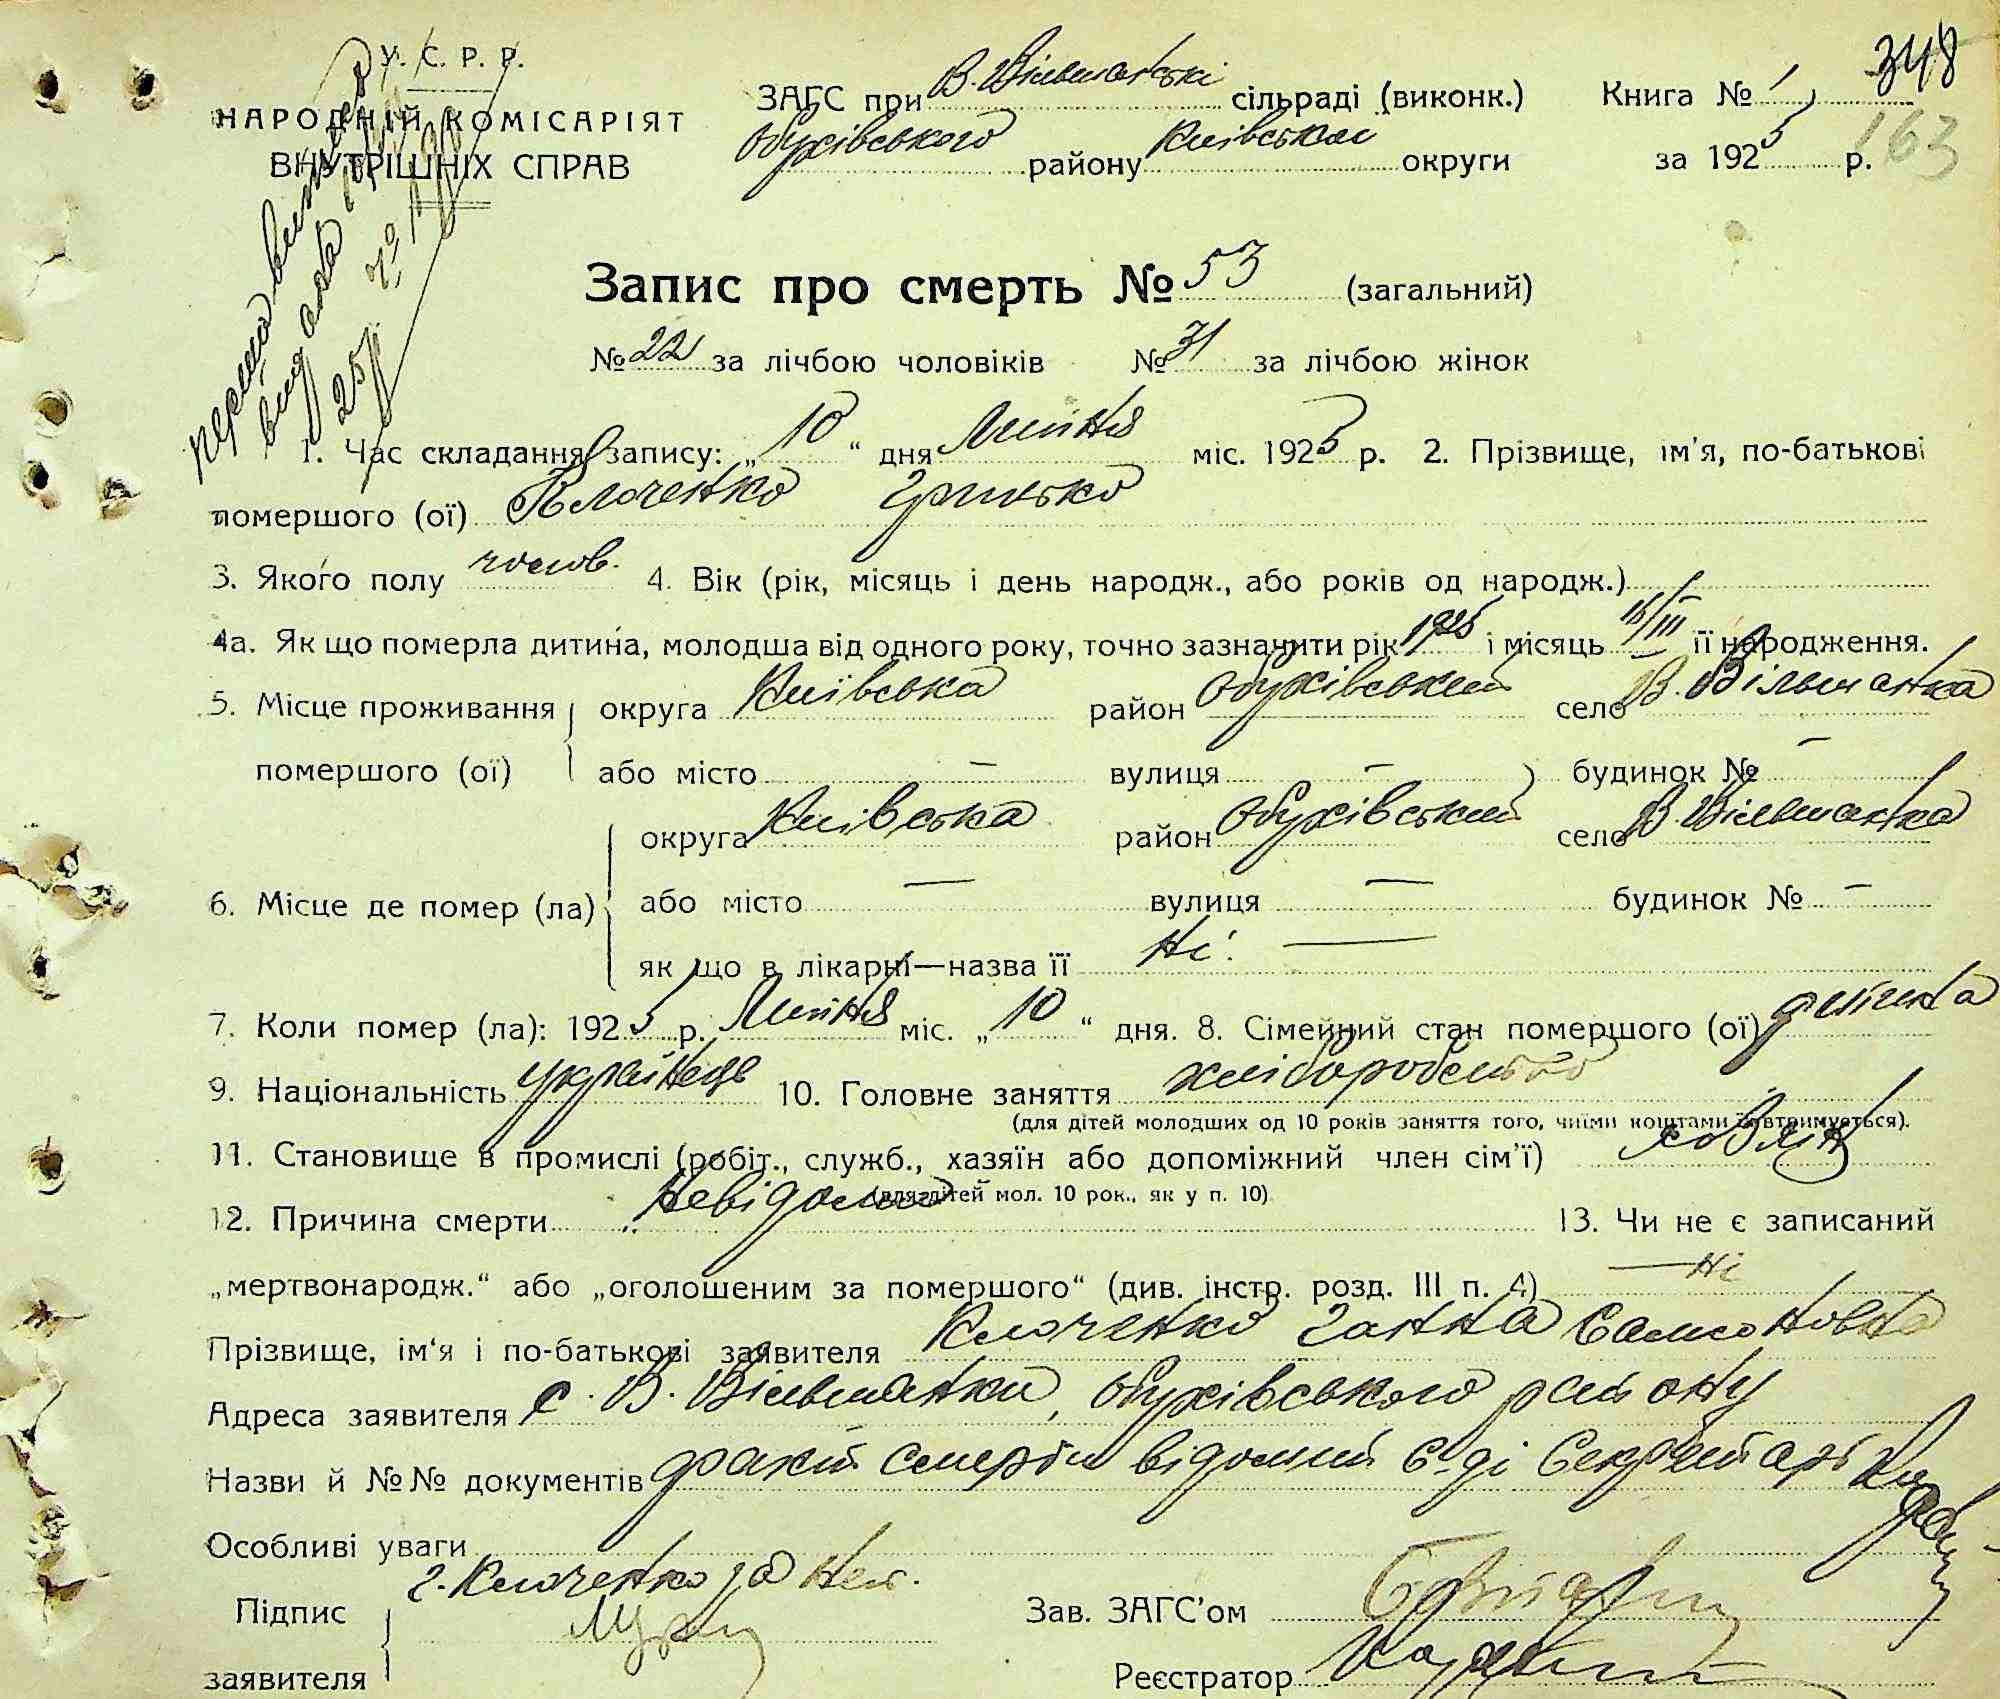 348
У. С. Р. Р.
НАРОДНІЙ КОМІСАРІЯТ
ВНУТРІШНІХ СПРАВ
ЗАГС при В. Вільшанські сільраді (виконк.) Книга № 1
Обухівського району Київської округи за 1925 р. 163
перша
видана
25 р. №
Запис про смерть № 53 (загальний)
№ 22 за лічбою чоловіків № 31 за лічбою жінок
1. Час складання запису: „10“ дня Липня міс. 1925 р. 2. Прізвище, ім'я, по-батькові
помершого (ої) Клоченко Грицько
3. Якого полу чолов. 4. Вік (рік, місяць і день народж., або років од народж.)
4а. Як що померла дитина, молодша від одного року, точно зазначити рік 1925 і місяць 16/III її народження.
5. Місце проживання округа Київська район Обухівський село В. Вільшанка
помершого (ої) або місто — вулиця — будинок № —
округа Київська район Обухівський село В. Вільшанка
6. Місце де помер (ла) або місто — вулиця — будинок № —
як що в лікарні—назва її Ні. —
7. Коли помер (ла): 1925 р. Липня міс. „10“ дня. 8. Сімейний стан помершого (ої) дитина
9. Національність українець 10. Головне заняття хліборобство
(для дітей молодших од 10 років заняття того, чиїми коштами її втримується).
11. Становище в промислі (робіт., служб., хазяїн або допоміжний член сім'ї) хазяїн
(для дітей мол. 10 рок., як у п. 10)
12. Причина смерти невідома 13. Чи не є записаний
„мертвонародж.“ або „оголошеним за помершого“ (див. інстр. розд. III п. 4) — Ні
Прізвище, ім'я і по-батькові заявителя Клоченко Ганна Самсоновна
Адреса заявителя с. В. Вільшанки, Обухівського району
Назви й №№ документів факт смерти відомий с-ді Секретарь
Особливі уваги
Г. Клоченко за неп.
Підпис
заявителя
Зав. ЗАГС'ом
Реєстратор